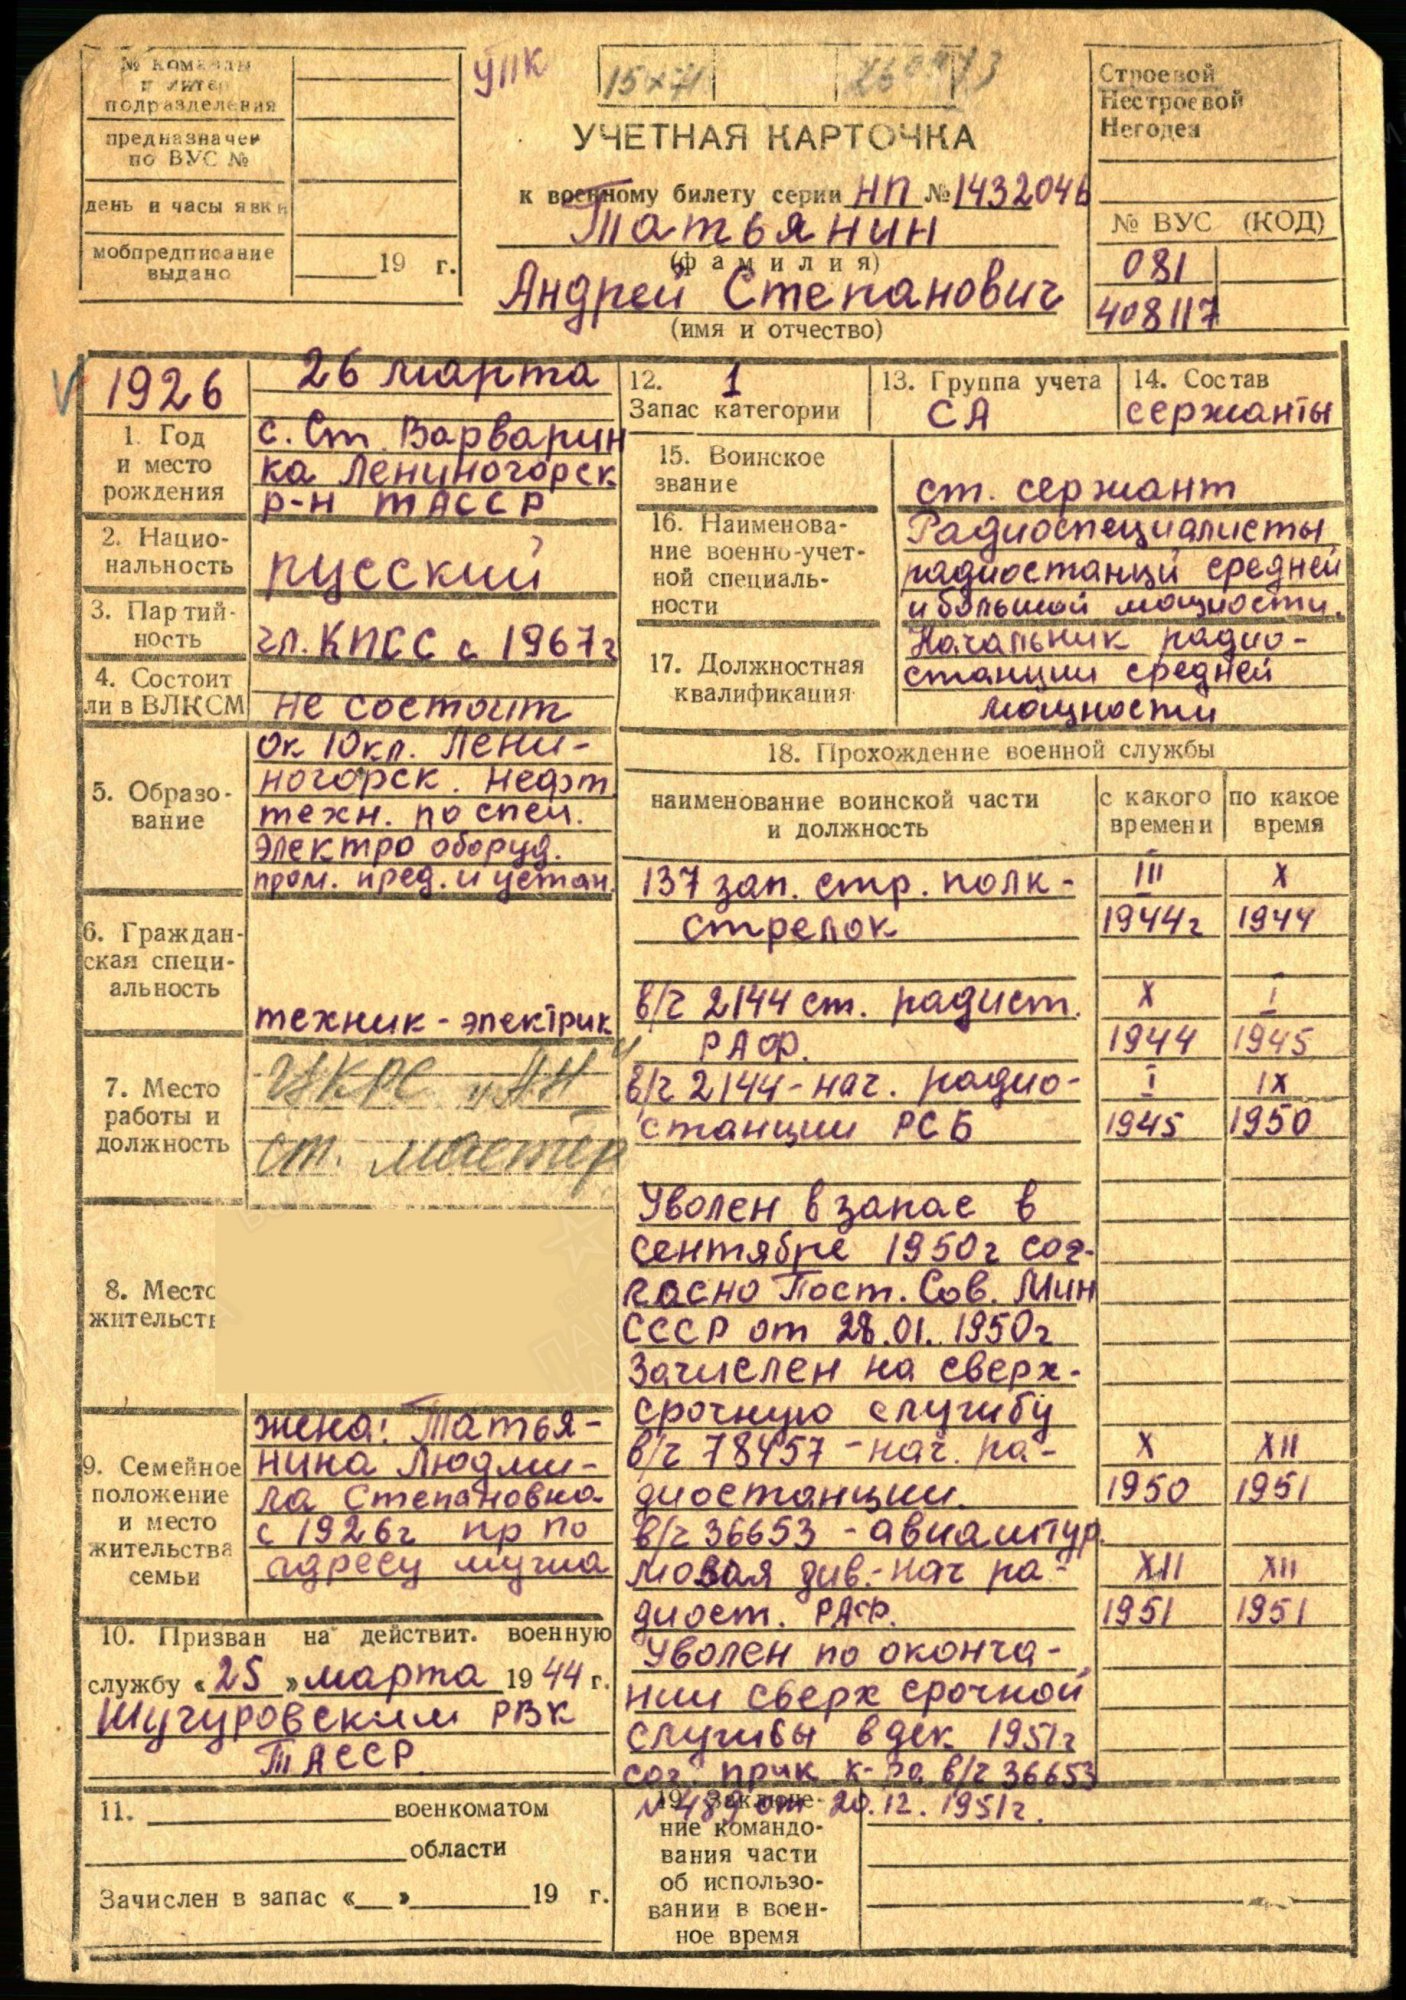 № команды
и литер
подразделения
предназначен
по ВУС №
день и часы явки
мобпредписание
выдано
19 г.
УПК
УЧЕТНАЯ КАРТОЧКА
к военному билету серии НП № 1432046
Татьянин
(фамилия)
Андрей Степанович
(имя и отчество)
Строевой
Нестроевой
Негоден
№ ВУС (КОД)
081
408117
1926
1. Год
и место
рождения
26 марта
с. Ст. Варварин
ка Лениногорск
р-н ТАССР
2. Нацио-
нальность
русский
3. Партий-
ность
чл. КПСС с 1967г
4. Состоит
ли в ВЛКСМ
не состоит
5. Образо-
вание
ок 10кл. Лени-
ногорск. нефт.
техн. по спец.
электро оборуд.
пром. пред. и устан.
6. Граждан-
ская специ-
альность
техник-электрик
7. Место
работы и
должность
ст. мастер
8. Место
жительст
9. Семейное
положение
и место
жительства
семьи
жена: Татья-
нина Людми-
ла Степановна
с 1926г пр по
адресу мужа
10. Призван на действит. военную
службу «25» марта 1944 г.
Шугуровским РВК
ТАССР
11. военкоматом
области
Зачислен в запас « » 19 г.
12. 1
Запас категории
13. Группа учета
СА
14. Состав
сержанты
15. Воинское
звание
ст. сержант
16. Наименова-
ние военно-учет-
ной специаль-
ности
Радиоспециалисты
радиостанций средней
и большой мощности.
17. Должностная
квалификация
Начальник радио-
станции средней
мощности
18. Прохождение военной службы
наименование воинской части
и должность
с какого
времени
по какое
время
137 зап. стр. полк- III X
стрелок 1944г 1944
в/ч 2144 ст. радист. X I
РАФ. 1944 1945
в/ч 2144-нач. радио- I IX
станции РСБ 1945 1950
Уволен в запас в
сентябре 1950г сог-
ласно Пост. Сов. Мин
СССР от 28.01.1950г
Зачислен на сверх-
срочную службу
в/ч 78457 -нач. ра- X XII
диостанции. 1950 1951
в/ч 36653 - авиаштур
мовая див.-нач ра- XII XII
диост. РАФ. 1951 1951
Уволен по оконча-
нии сверх срочной
службы в дек 1951г
сог. прик к-ра в/ч 36653
№ 489 от 20.12.1951г.
19. Заключе-
ние командо-
вания части
об использо-
вании в воен-
ное время